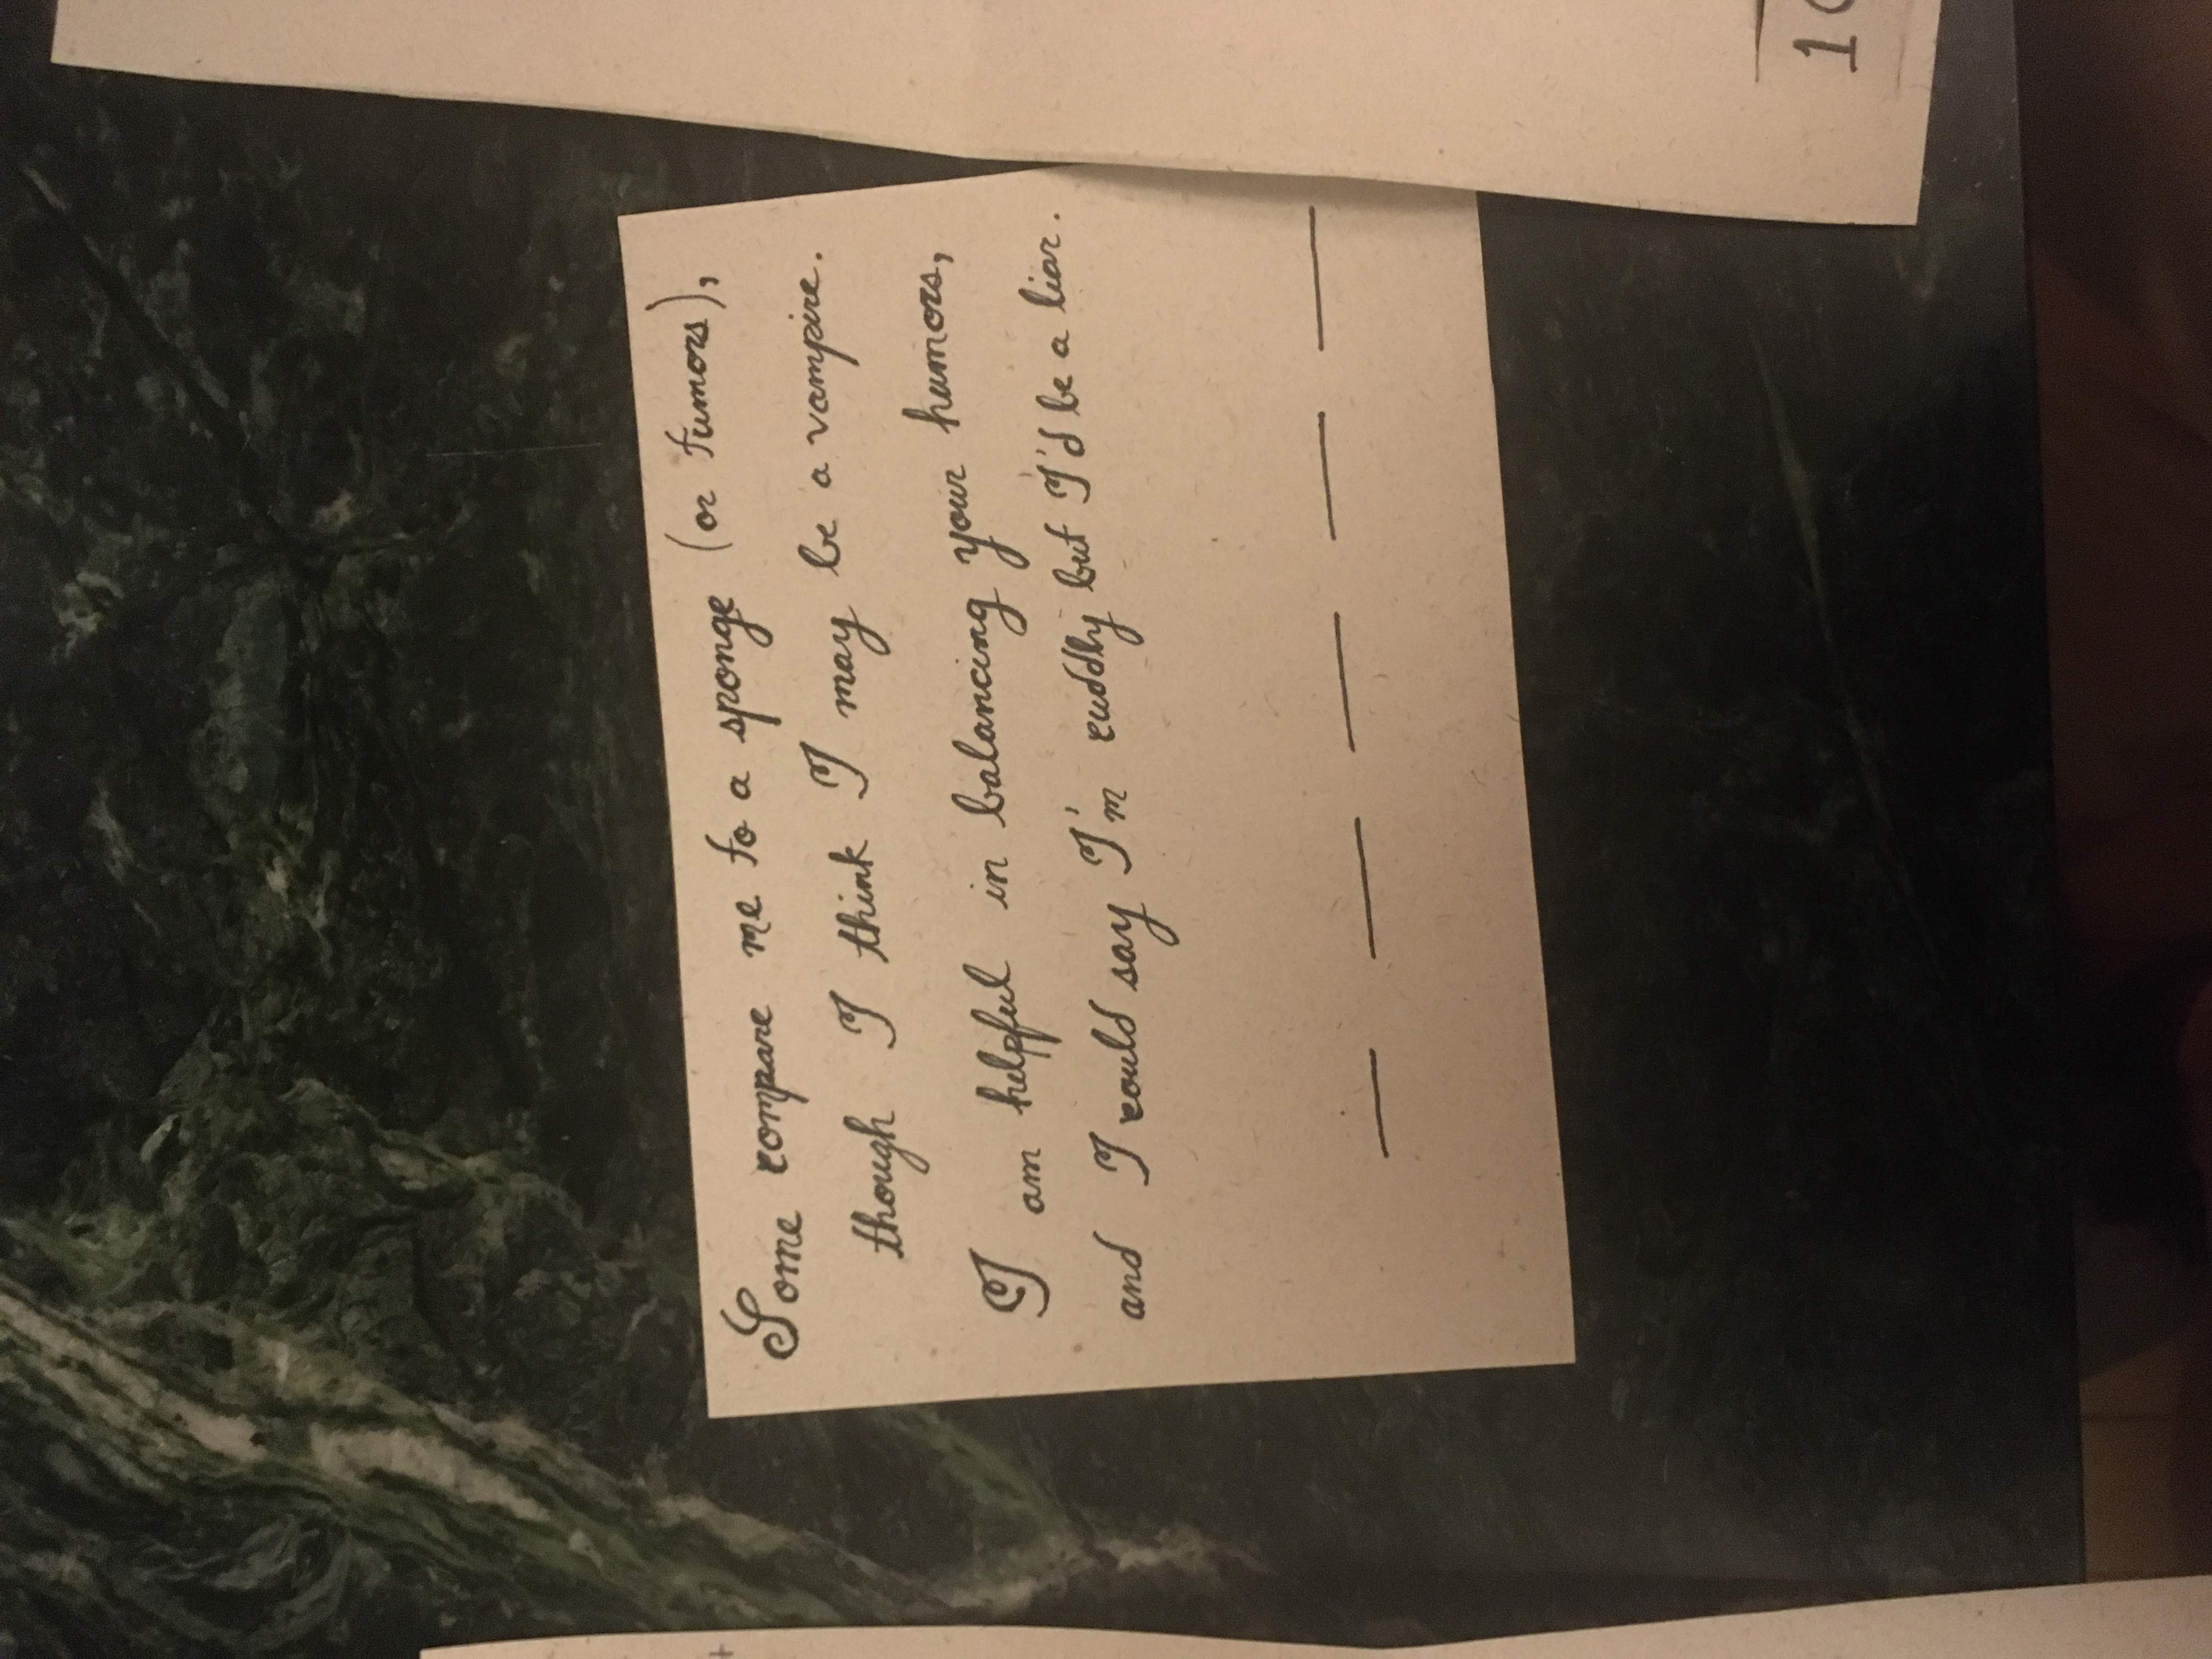 Some compare me to a sponge (or tumors),
though I think I may be a vampire.
I am helpful in balancing your humors,
and I could say I'm cuddly but I'd be a liar.